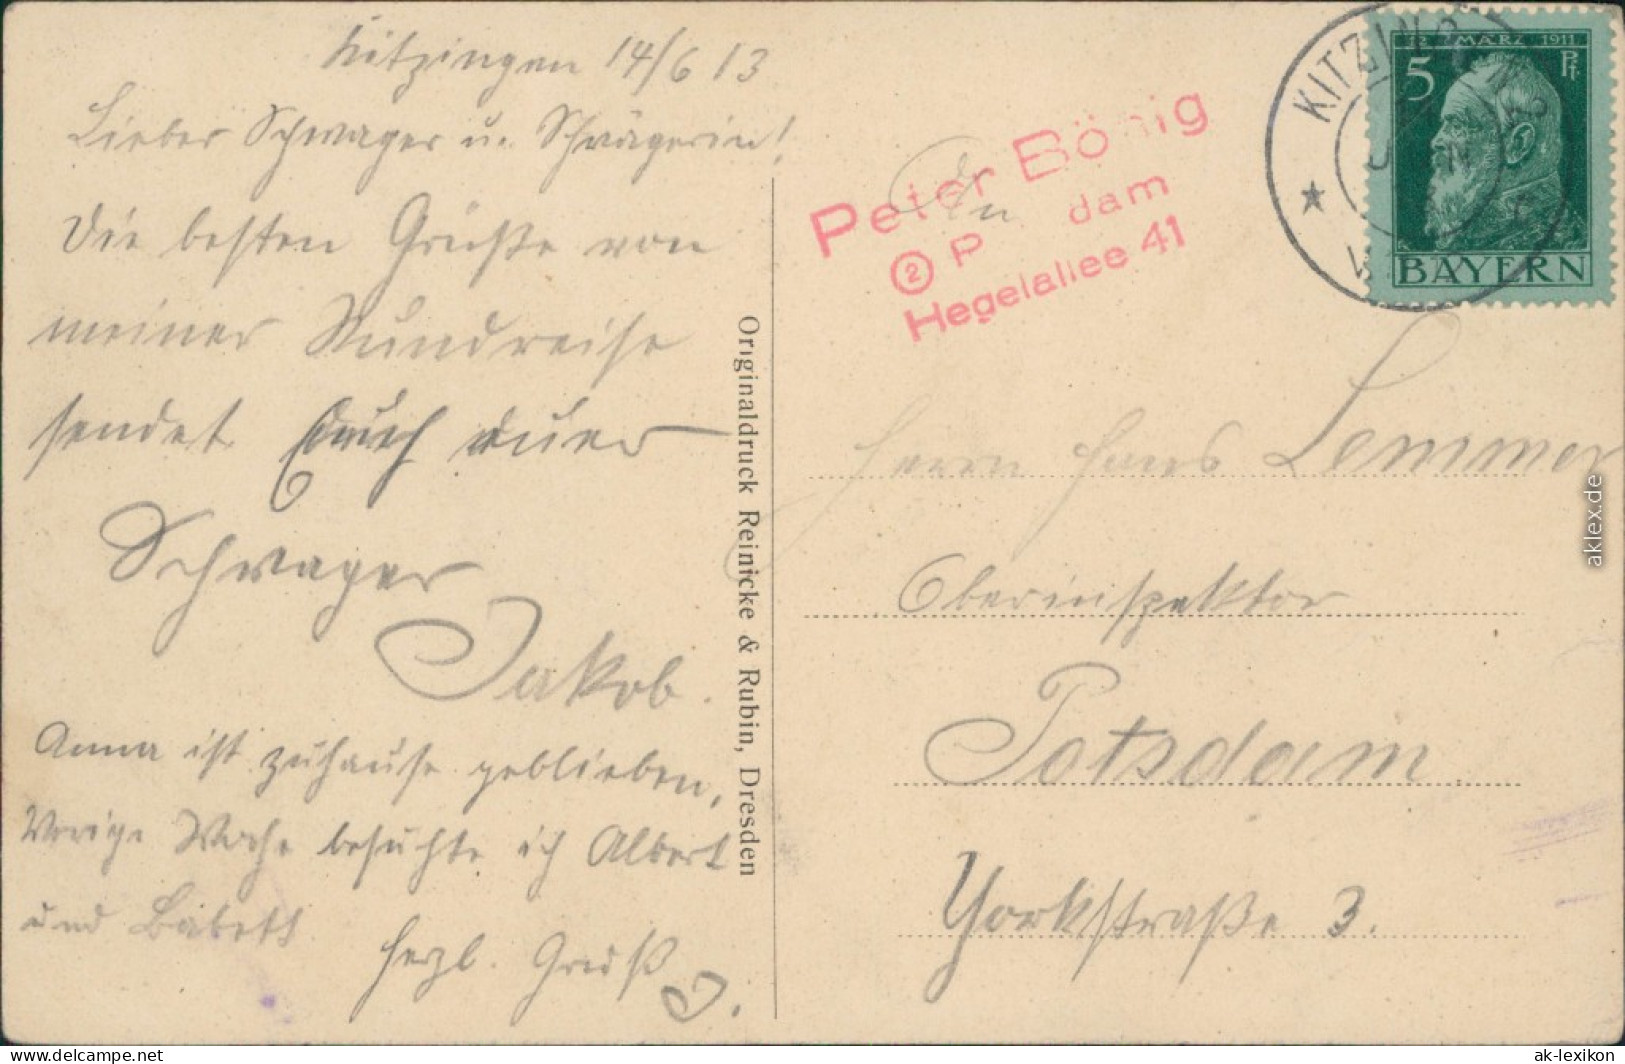 Kitzingen 14/6 13
Lieber Schwager u. Schwägerin!
Die besten Grüße von
meiner Rundreise
sendet Euch euer
Schwager
Jakob.
Anna ist zuhause geblieben,
Vorige Woche besuchte ich Albert
und Babett
herzl. Gruß
J.
Originaldruck Reinicke & Rubin, Dresden
Peter Bönig
2 P dam
Hegelallee 41
An
Herrn Hans Lemmer
Oberinspektor
Potsdam.
Yorkstraße 3.
KITZINGEN
12. MÄRZ 1911
5 Pf.
BAYERN
aklex.de
hipostcard.com
ak-lexikon